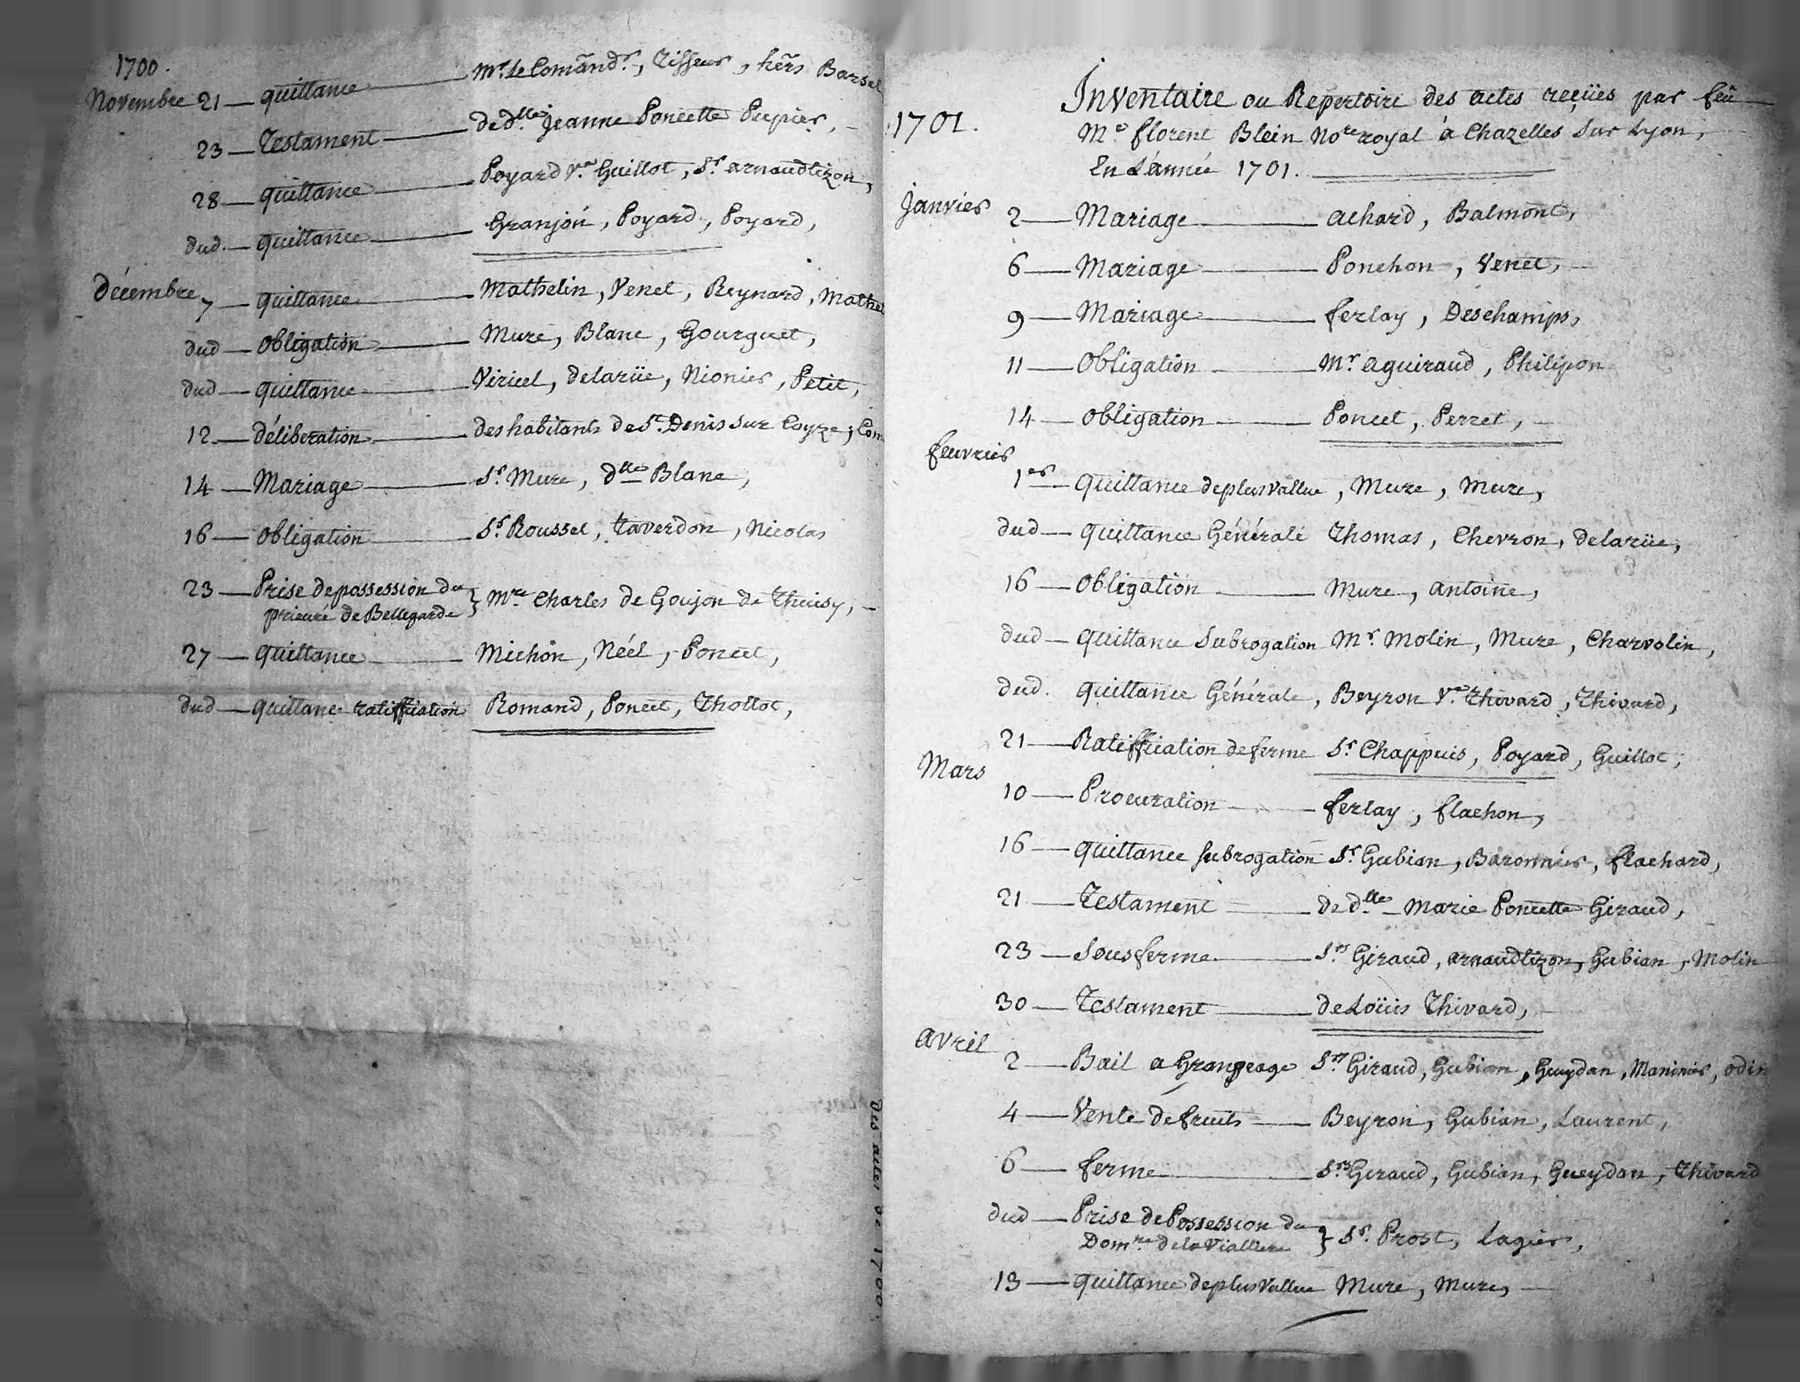 1700.
Novembre 21 — quittance — Mr. le Comãndr., Tisseur, hẽrs Barsel
23 — Testament — de dlle. Jeanne Poncette Pupier, —
28 — quittance — Poyard Ve. Guillot, Sr. arnaudtizon,
dud. — quittance — Granjon, Poyard, Poyard,
décembre 7 — quittance — Mathelin, Venet, Reynard, Mathel
dud — obligation — Mure, Blanc, Gourguet,
dud — quittance — Viricel, delarüe, Nionier, Petit,
12 — délibération — des habitants de St. Denis sur Coyze, Com
14 — Mariage — Sr. Mure, dlle Blanc,
16 — obligation — Sr. Roussel, taverdon, Nicolas
23 — Prise de possession du
prieuré de Bellegarde } Mre. Charles de Goujon de Thuisy, —
27 — quittance — Michon, Néél, Poncet,
dud — quittance ratiffication Romand, Poncet, Thollot,
Des actes de 1700.
Inventaire ou Repertoire des actes reçües par feû
1701. Me florent Blein Nore royal à Chazelles sur Lyon,
En L'année 1701.
janvier 2 — Mariage — achard, Balmont,
6 — Mariage — Ponchon, Venet, —
9 — Mariage — ferlay, Deschamps,
11 — obligation — Mr. aguiraud, Philipon
14 — obligation — Poncet, Perret, —
feuvrier 1er — quittance de plus vallue, Mure, Mure,
dud — quittance Générale Thomas, Chevron, delarüe,
16 — obligation — Mure, antoine,
dud — quittance Subrogation Mr Molin, Mure, Charvolin,
dud. quittance Générale, Beyron Ve. Thivard, Thivard,
21 — Ratiffication de ferme Sr Chappuis, Poyard, Guillot,
Mars 10 — Procuration — ferlay, flachon,
16 — quittance subrogation Sr. Gubian, Baronnier, flachard,
21 — Testament — de dlle. Marie Poncette Giraud,
23 — Sousferme — Srs Giraud, arnaudtizon, Gubian, Molin
30 — Testament — de Loüis Thivard, —
avril 2 — Bail a Grangeage Srs Giraud, Gubian, Gueydan, Maninier, odin
4 — Vente de fruits — Beyron, Gubian, Laurent,
6 — ferme — Srs Giraud, Gubian, Gueydan, Thivard
dud — Prise de Possession du
Domne de la Vialliere } Sr. Prost, Lagier,
13 — quittance de plus vallue Mure, Mure, —